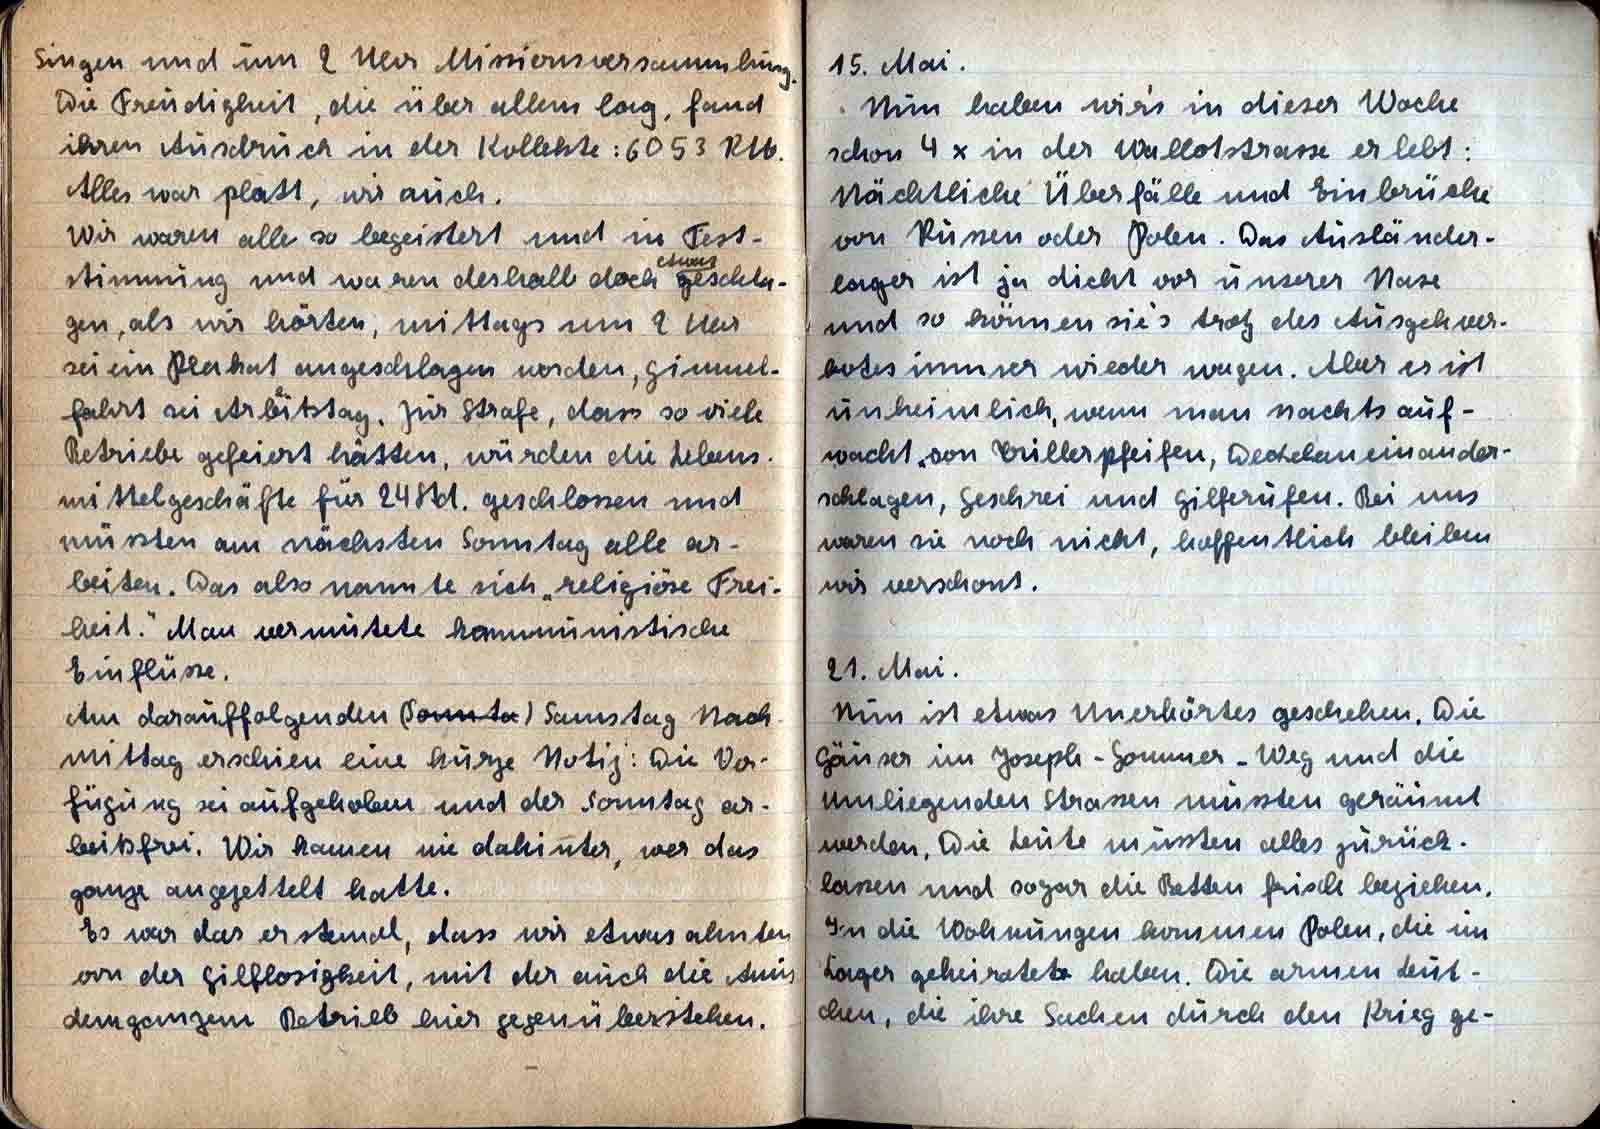 Singen und um 2 Uhr Missionsversammlung.
Die Freudigkeit, die über allem lag, fand
ihren Ausdruck in der Kollekte: 6053 RM.
Alles war platt, wir auch.
Wir waren alle so begeistert und in Fest-
stimmung und waren deshalb doch etwas geschla-
gen, als wir hörten, mittags um 2 Uhr
sei ein Plakat angeschlagen worden, Himmel-
fahrt sei Arbeitstag. Zur Strafe, dass so viele
Betriebe gefeiert hätten, würden die Lebens-
mittelgeschäfte für 24 Std. geschlossen und
müssten am nächsten Sonntag alle ar-
beiten. Das also nannte sich „religiöse Frei-
heit." Man vermutete kommunistische
Einflüsse.
Am darauffolgenden (Sonnta) Samstag Nach-
mittag erschien eine kurze Notiz: Die Ver-
fügung sei aufgehoben und der Sonntag ar-
beitsfrei. Wir kamen nie dahinter, wer das
ganze angezettelt hatte.
Es war das erstemal, dass wir etwas ahnten
von der Hilflosigkeit, mit der auch die Amis
dem ganzen Betrieb hier gegenüberstehen.
15. Mai.
Nun haben wir's in dieser Woche
schon 4 x in der Wallotstrasse erlebt:
Nächtliche Überfälle und Einbrüche
von Russen oder Polen. Das Ausländer-
lager ist ja dicht vor unserer Nase
und so können sie's trotz des Ausgehver-
botes immer wieder wagen. Aber es ist
unheimlich, wenn man nachts auf-
wacht von Trillerpfeifen, Deckelaneinander-
schlagen, Geschrei und Hilferufen. Bei uns
waren sie noch nicht, hoffentlich bleiben
wir verschont.
21. Mai.
Nun ist etwas Unerhörtes geschehen. Die
Häuser im Joseph-Hommer-Weg und die
umliegenden Strassen mussten geräumt
werden. Die Leute mussten alles zurück-
lassen und sogar die Betten frisch beziehen.
In die Wohnungen kommen Polen, die im
Lager geheiratet haben. Die armen Leut-
chen, die ihre Sachen durch den Krieg ge-